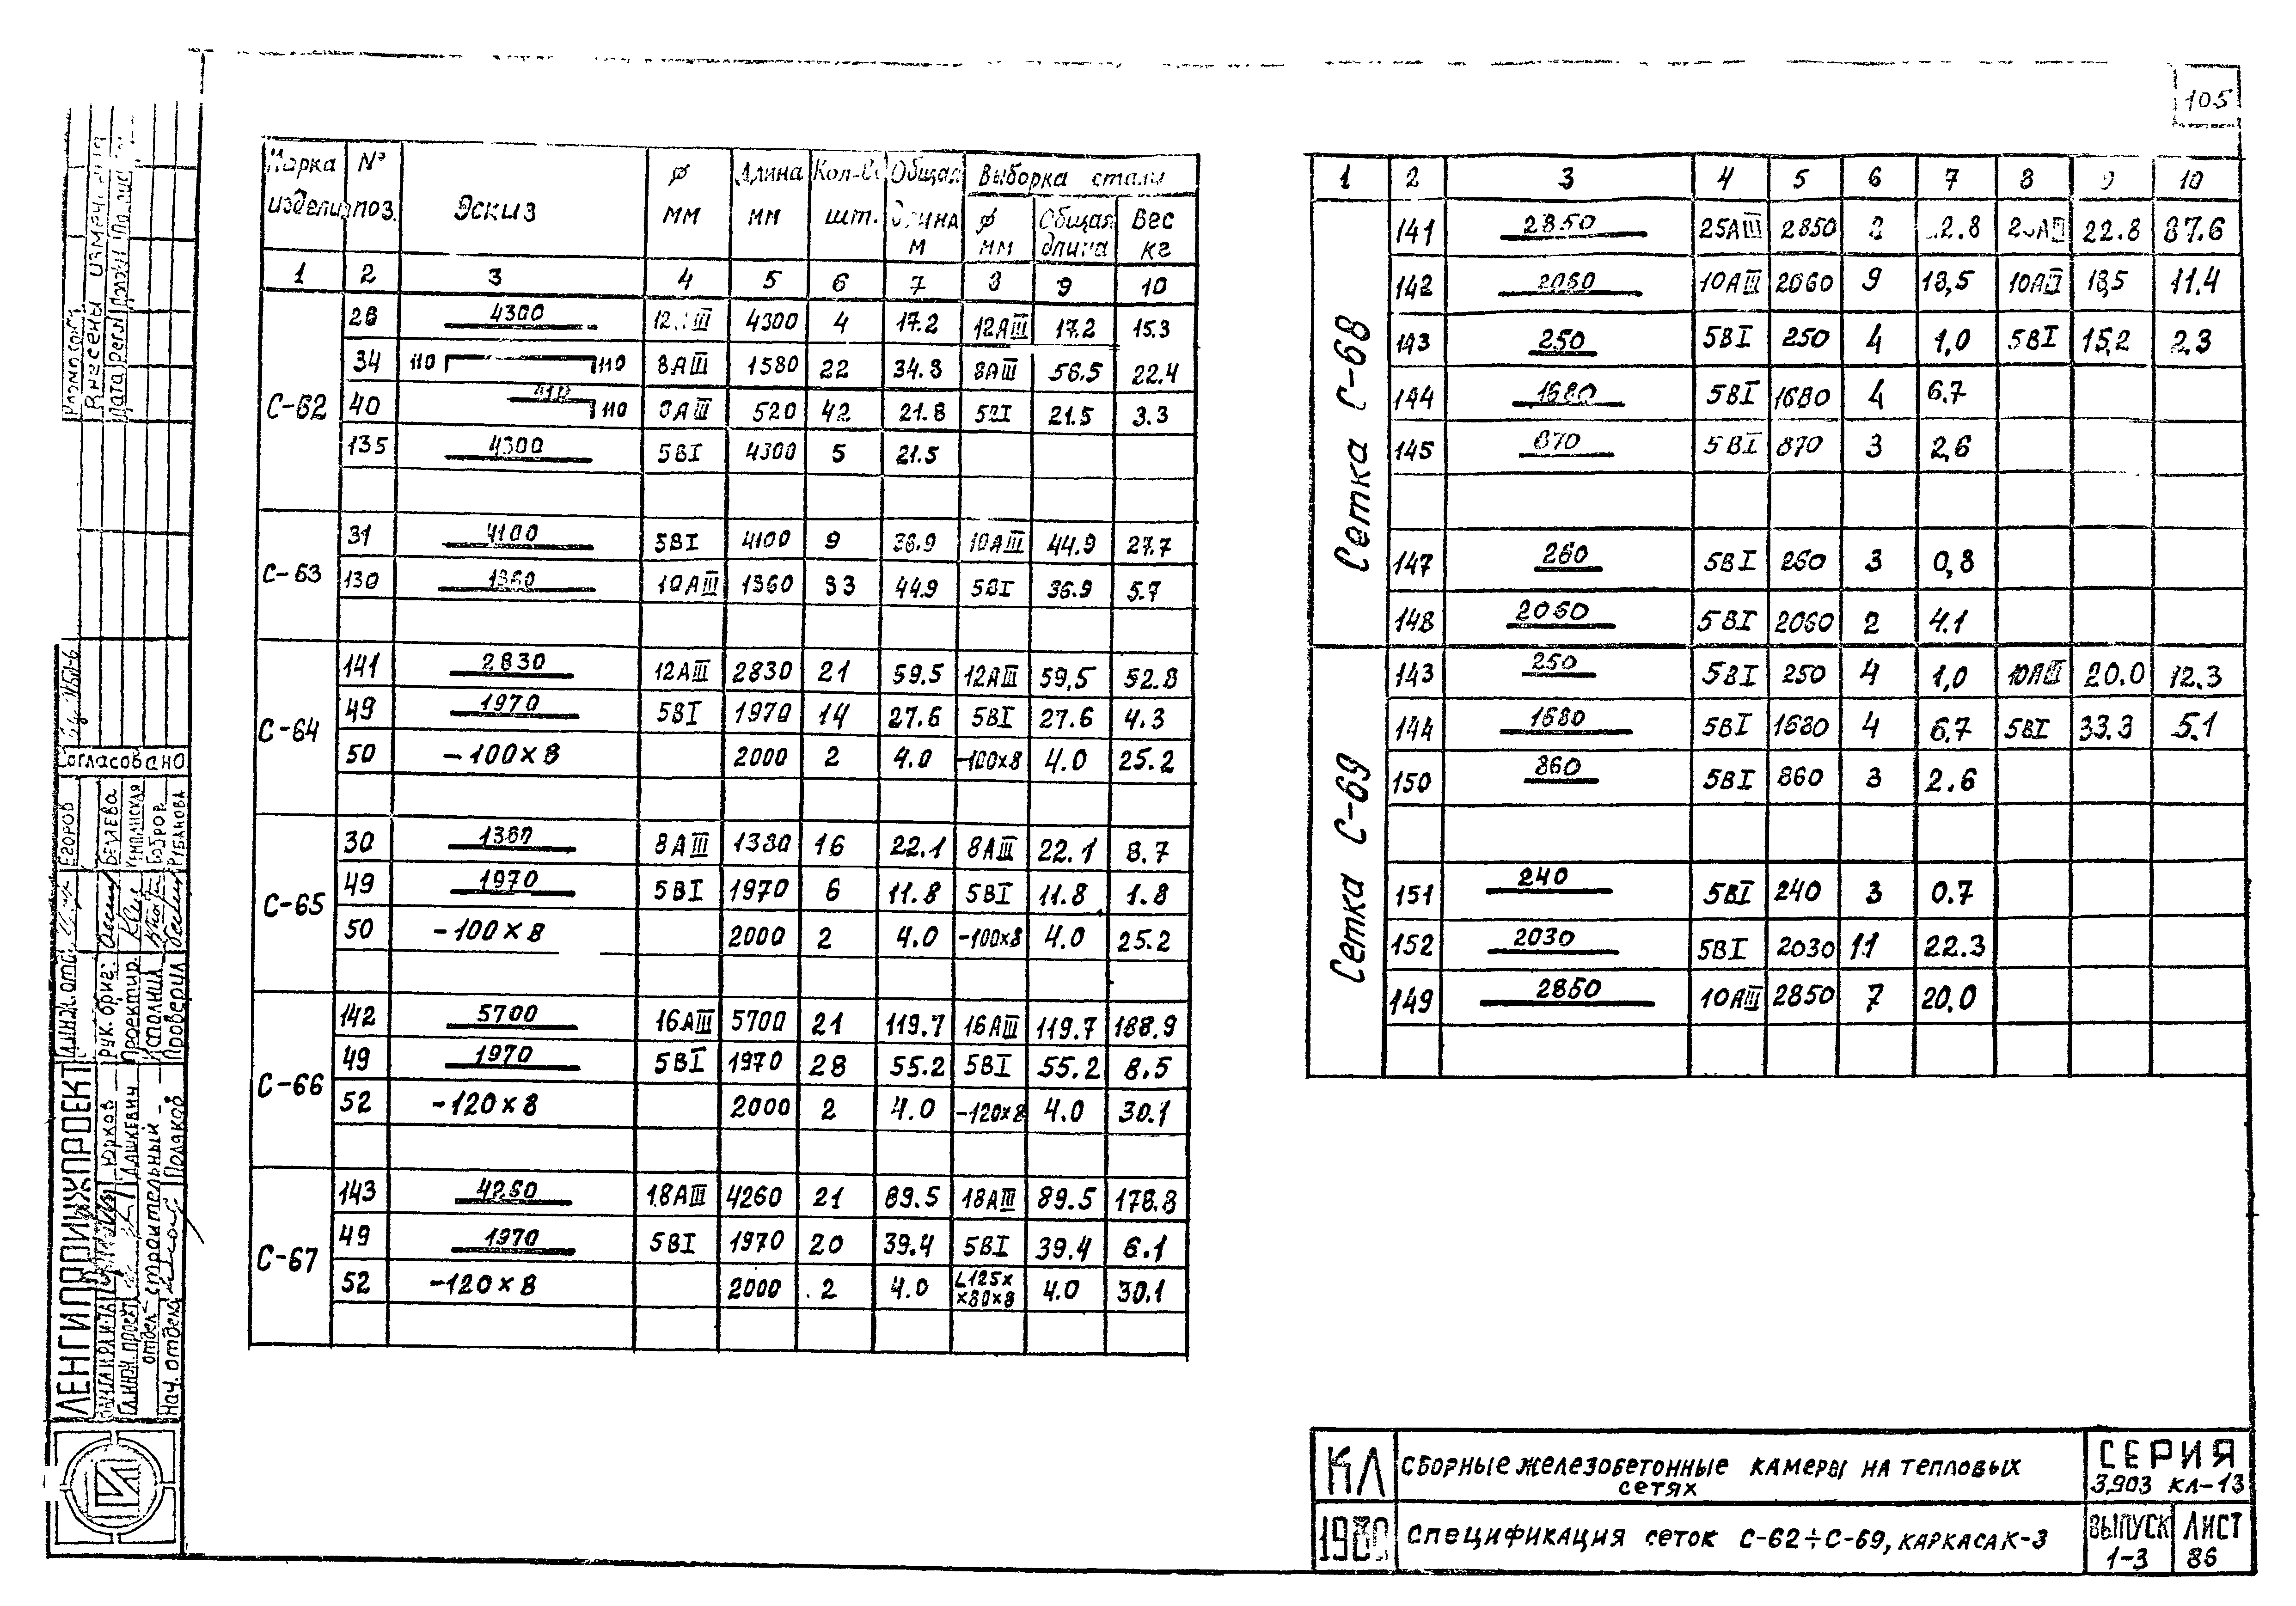 105
Марка изделия | № поз. | Эскиз | ⌀ мм | Длина мм | Кол-во шт. | Общая длина м | Выборка стали
⌀ мм | Общая длина | Вес кг
1 | 2 | 3 | 4 | 5 | 6 | 7 | 8 | 9 | 10
С-62
28 | 4300 | 12AIII | 4300 | 4 | 17.2 | 12AIII | 17.2 | 15.3
34 | 110 110 | 8AIII | 1580 | 22 | 34.8 | 8AIII | 56.5 | 22.4
40 | 110 | 8AIII | 520 | 42 | 21.8 | 5BI | 21.5 | 3.3
135 | 4300 | 5BI | 4300 | 5 | 21.5
С-63
31 | 4100 | 5BI | 4100 | 9 | 36.9 | 10AIII | 44.9 | 27.7
130 | 1360 | 10AIII | 1360 | 33 | 44.9 | 5BI | 36.9 | 5.7
С-64
141 | 2830 | 12AIII | 2830 | 21 | 59.5 | 12AIII | 59,5 | 52.8
49 | 1970 | 5BI | 1970 | 14 | 27.6 | 5BI | 27.6 | 4.3
50 | -100×8 | 2000 | 2 | 4.0 | -100×8 | 4.0 | 25.2
С-65
30 | 1380 | 8AIII | 1380 | 16 | 22.1 | 8AIII | 22.1 | 8.7
49 | 1970 | 5BI | 1970 | 6 | 11.8 | 5BI | 11.8 | 1.8
50 | -100×8 | 2000 | 2 | 4.0 | -100×8 | 4.0 | 25.2
С-66
142 | 5700 | 16AIII | 5700 | 21 | 119.7 | 16AIII | 119.7 | 188.9
49 | 1970 | 5BI | 1970 | 28 | 55.2 | 5BI | 55.2 | 8.5
52 | -120×8 | 2000 | 2 | 4.0 | -120×8 | 4.0 | 30.1
С-67
143 | 4260 | 18AIII | 4260 | 21 | 89.5 | 18AIII | 89.5 | 178.8
49 | 1970 | 5BI | 1970 | 20 | 39.4 | 5BI | 39.4 | 6.1
52 | -120×8 | 2000 | 2 | 4.0 | L125××80×8 | 4.0 | 30.1
1 | 2 | 3 | 4 | 5 | 6 | 7 | 8 | 9 | 10
Сетка С-68
141 | 2850 | 25AIII | 2850 | 22.8 | 87.6
142 | 2060 | 10AIII | 2060 | 9 | 18,5 | 10AIII | 18,5 | 11.4
143 | 250 | 5BI | 250 | 4 | 1,0 | 5BI | 15,2 | 2,3
144 | 1680 | 5BI | 1680 | 4 | 6.7
145 | 870 | 5BI | 870 | 3 | 2,6
147 | 260 | 5BI | 260 | 3 | 0,8
148 | 2060 | 5BI | 2060 | 2 | 4.1
Сетка С-69
143 | 250 | 5BI | 250 | 4 | 1,0 | 10AIII | 20.0 | 12.3
144 | 1680 | 5BI | 1680 | 4 | 6,7 | 5BI | 33.3 | 5.1
150 | 860 | 5BI | 860 | 3 | 2.6
151 | 240 | 5BI | 240 | 3 | 0.7
152 | 2030 | 5BI | 2030 | 11 | 22.3
149 | 2850 | 10AIII | 2850 | 7 | 20.0
КЛ
СБОРНЫЕ ЖЕЛЕЗОБЕТОННЫЕ КАМЕРЫ НА ТЕПЛОВЫХ
СЕТЯХ
СЕРИЯ
3.903 КЛ-13
1980
СПЕЦИФИКАЦИЯ СЕТОК С-62÷С-69, КАРКАСА К-3
ВЫПУСК
1-3
ЛИСТ
86
Внесены измен.
Дата
Согласовано
Егоров
Беляева
Рубанова
Рук. бриг.
Проектир.
Исполнил
Проверил
ЛЕНГИПРОИНЖПРОЕКТ
Юрков
Гл.инж.проект
отдел строительный
Нач.отдела
Поляков